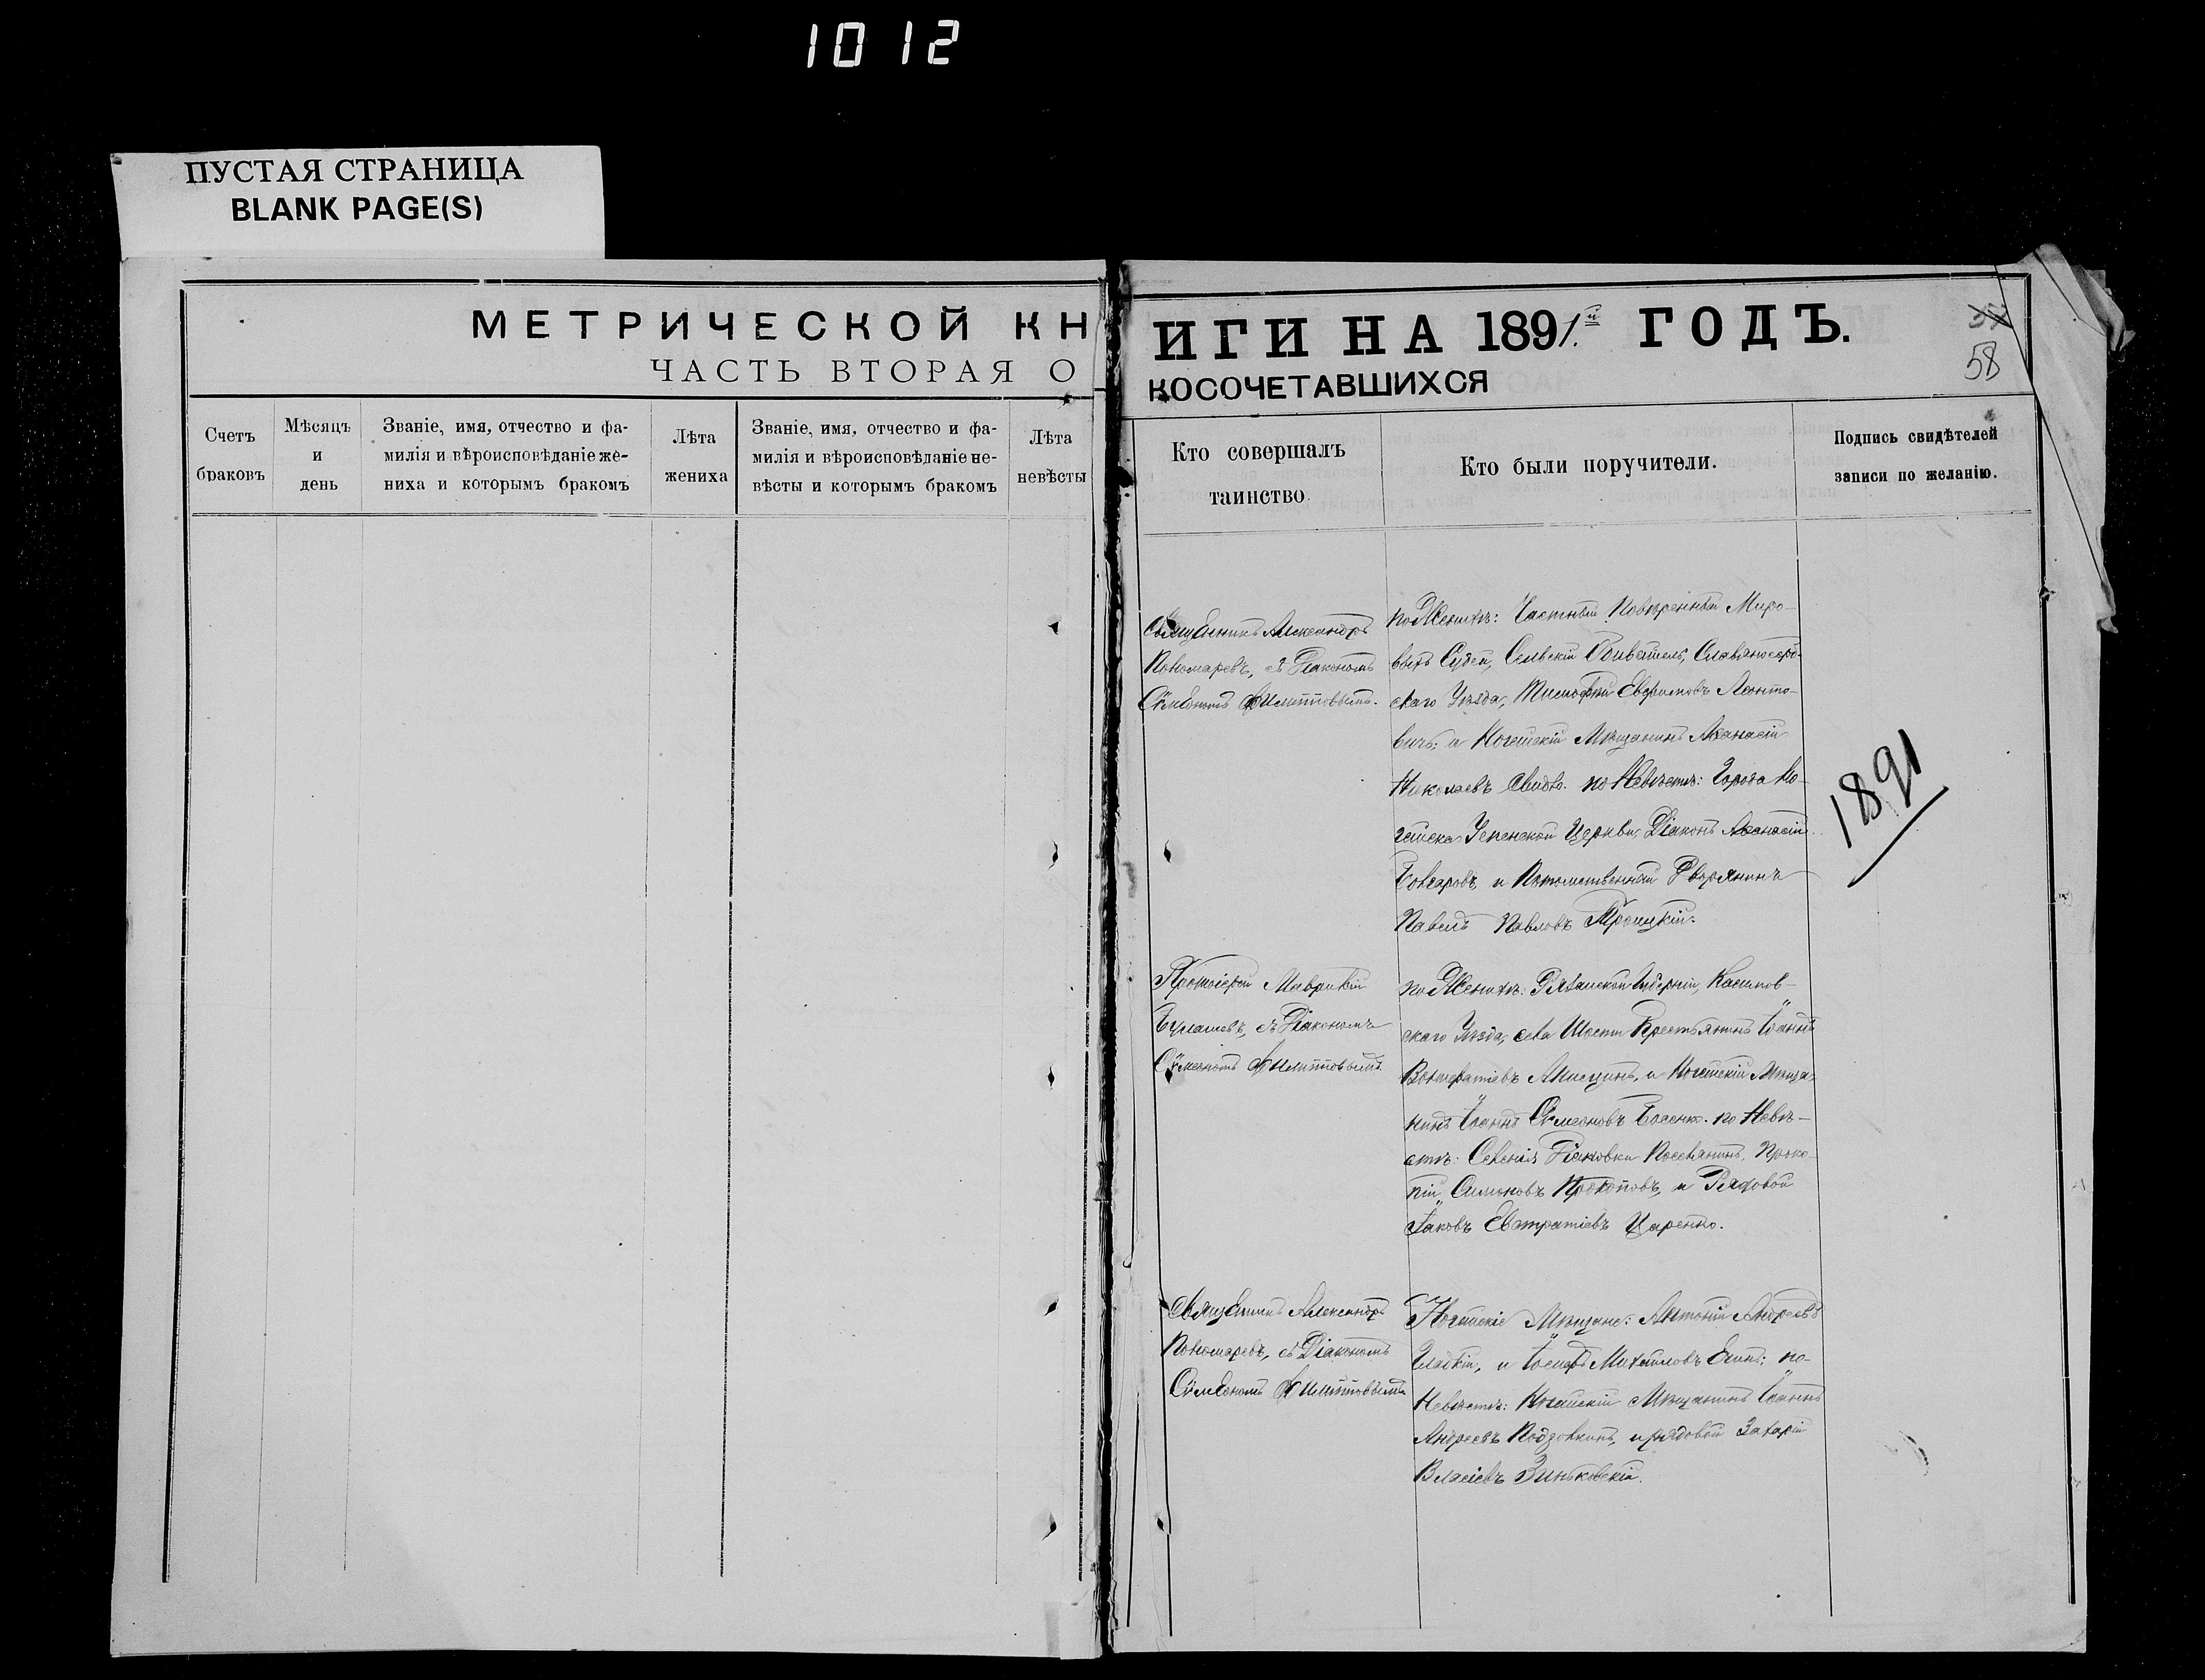 1012
ПУСТАЯ СТРАНИЦА
BLANK PAGE(S)
МЕТРИЧЕСКОЙ КН
ЧАСТЬ ВТОРАЯ О
Счетъ
браковъ
Мѣсяцъ
и
день
Званіе, имя, отчество и фа-
милія и вѣроисповѣданіе же-
ниха и которымъ бракомъ
Лѣта
жениха
Званіе, имя, отчество и фа-
милія и вѣроисповѣданіе не-
вѣсты и которымъ бракомъ
Лѣта
невѣсты
ИГИ НА 1891й ГОДЪ.
КОСОЧЕТАВШИХСЯ
58
Кто совершалъ
таинство
Кто были поручители.
Подпись свидѣтелей
записи по желанію.
Священникъ Александръ
Пономаревъ, съ Діакономъ
Сѵмеономъ Филипповымъ.
по Женихѣ: Частный Повѣренный Миро-
выхъ Судей, Сельскій Обыватель, Славяносерб-
скаго Уѣзда, Тимофей Евфимовъ Леонто-
вичъ; и Ногайскій Мѣщанинъ Аѳанасій
Николаевъ по Невѣстѣ: Города Но-
гайска Успенской Церкви Діаконъ Аѳанасій
и Потомственный Дворянинъ
Павелъ Павловъ Троицкій.
1891
Протоіерей Маврикій
съ Діакономъ
Сѵмеономъ Филипповымъ.
по Женихѣ: Рязанской Губерніи, Касимов-
скаго Уѣзда, села Крестьянинъ Іоаннъ
и Ногайскій Мѣща-
нинъ Іоаннъ Сѵмеоновъ по Невѣ-
стѣ: Селенія Поселянинъ, Проко-
пій Симоновъ Прокоповъ, и Рядовой
Іаковъ Евстратіевъ Царенко.
Священникъ Александръ
Пономаревъ, съ Діакономъ
Сѵмеономъ Филипповымъ
Ногайскіе Мѣщане: Антоній Андреевъ
Гладкій, и Іосифъ Михайловъ по-
Невѣстѣ: Ногайскій Мѣщанинъ Іоаннъ
Андреевъ и рядовой Захарій
Власіевъ Зиньковскій.